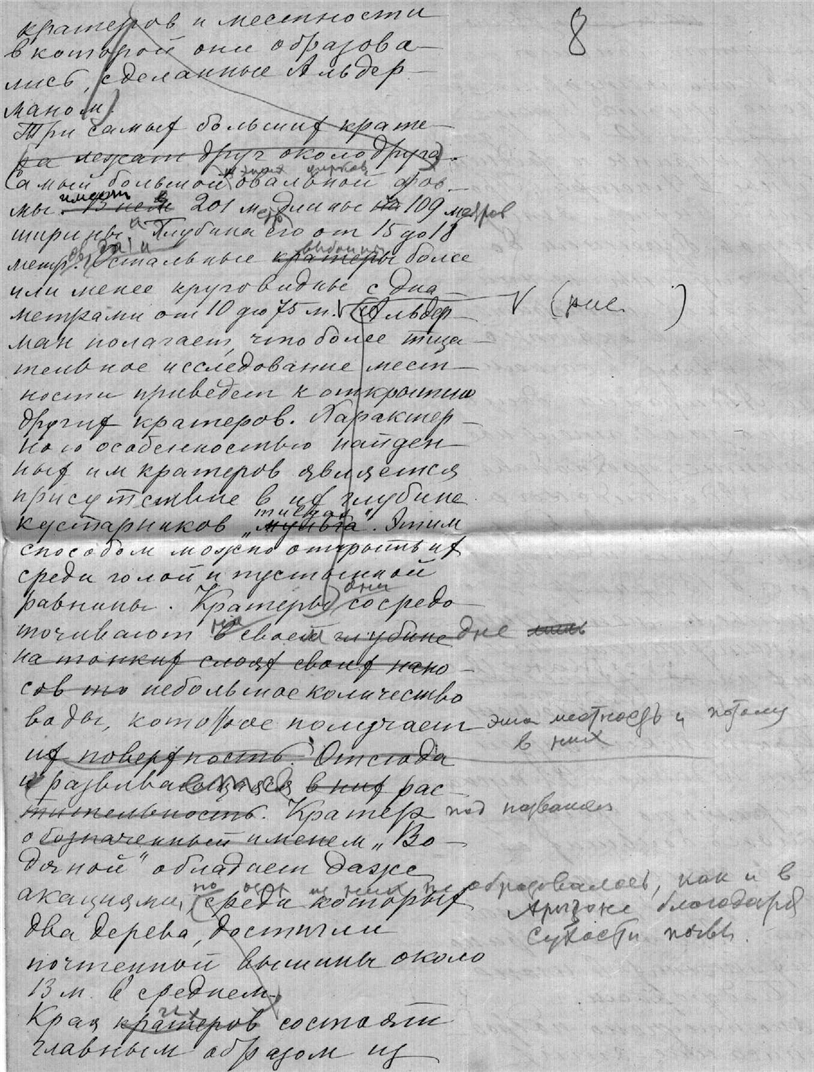 8
кратеров и местности
в которой они образова-
лись, сделанные Альдер-
маном.
Три самых больших крате-
ра лежат друг около друга.
Самый большой овальной фор-
мы имеет 201 м. длины на 109 метров
ширины и глубина его от 15 до 18
метр. Остальные кратеры более
или менее круговидные с диа-
метрами от 10 до 75 м. V (рис. )
Альдер-
ман полагает, что более тща-
тельное исследование мест-
ности приведет к открытию
других кратеров. Характер-
ною особенностью найден-
ных им кратеров является
присутствие в их глубине
кустарников „мульга“. Этим
способом можно открыть их
среди голой и пустынной
равнины. Кратеры они сосредо-
точивают на своем глубине дне
на тонких слоях своих нано-
сов то небольшое количество
воды, которое получает эта местность и потому
в них
их поверхность. Отсюда
и развивающаяся в них рас-
тительность. Кратер под названием
обозначенный именем „Во-
дяной“ обладает даже
акациями, среди которых
но ось из них не образовалось, как и в
Аризоне благодаря
сухости почвы.
два дерева, достигли
почтенной вышины около
13 м. в среднем.
Края кратеров состоят
главным образом из